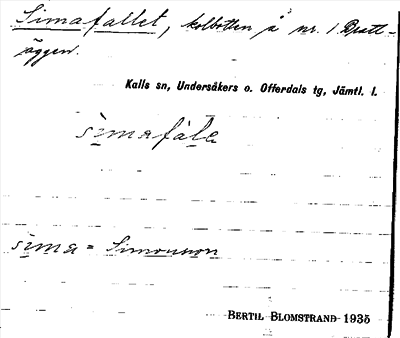 Simafallet, kolbotten å nr. 1 Bratt-
äggen.
Kalls sn, Undersåkers o. Offerdals tg, Jämtl. l.
simafàle
sima = Simonsson
BERTIL BLOMSTRAND 1935